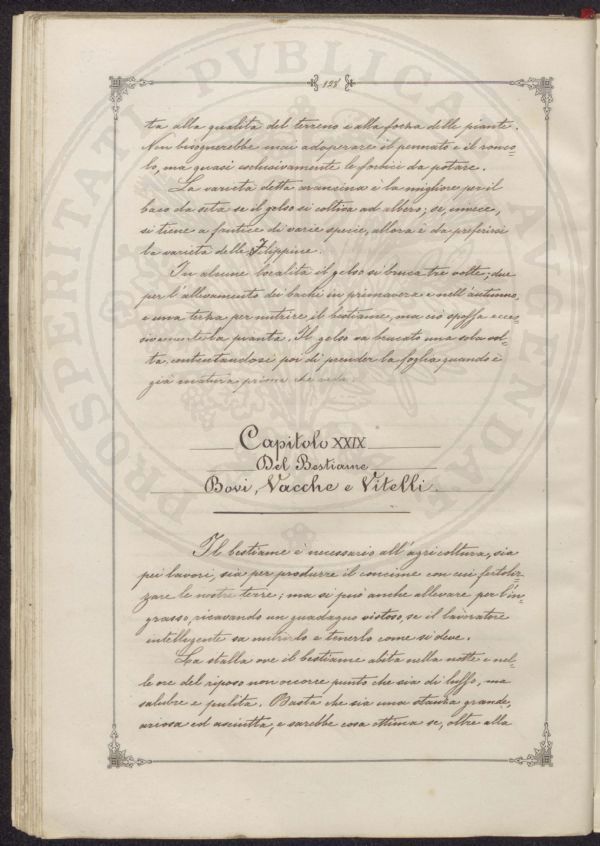 128
ta alla qualità del terreno e alla forza delle piante.
Non bisognerebbe mai adoperare il pennato e il ronco-
lo, ma quasi esclusivamente le forbici da potare.
La varietà detta arancina è la migliore per il
baco da seta se il gelso si coltiva ad albero; se, invece,
si tiene a frutice di varie specie, allora è da preferirsi
la varietà delle Filippine.
In alcune località il gelso si bruca tre volte; due
per l'allevamento dei bachi in primavera e nell'autunno,
e una terza per nutrire il bestiame, ma ciò spossa ecces-
sivamente la pianta. Il gelso va brucato una sola vol-
ta contentandosi poi di prender la foglia quando è
già matura prima che cada.
Capitolo XXIX
Del Bestiame
Bovi, Vacche e Vitelli.
Il bestiame è necessario all'agricoltura, sia
pei lavori, sia per produrre il concime con cui fertiliz-
zare le nostre terre; ma si può anche allevare per l'in-
grasso, ricavando un guadagno vistoso, se il lavoratore
intelligente sa nutrirlo e tenerlo come si deve.
La stalla ove il bestiame abita nella notte e nel-
le ore del riposo non occorre punto che sia di lusso, ma
salubre e pulita. Basta che sia una stanza grande,
ariosa ed asciutta, e sarebbe cosa ottima se, oltre alla
PROSPERITATI PVBLICAE AVGENDAE